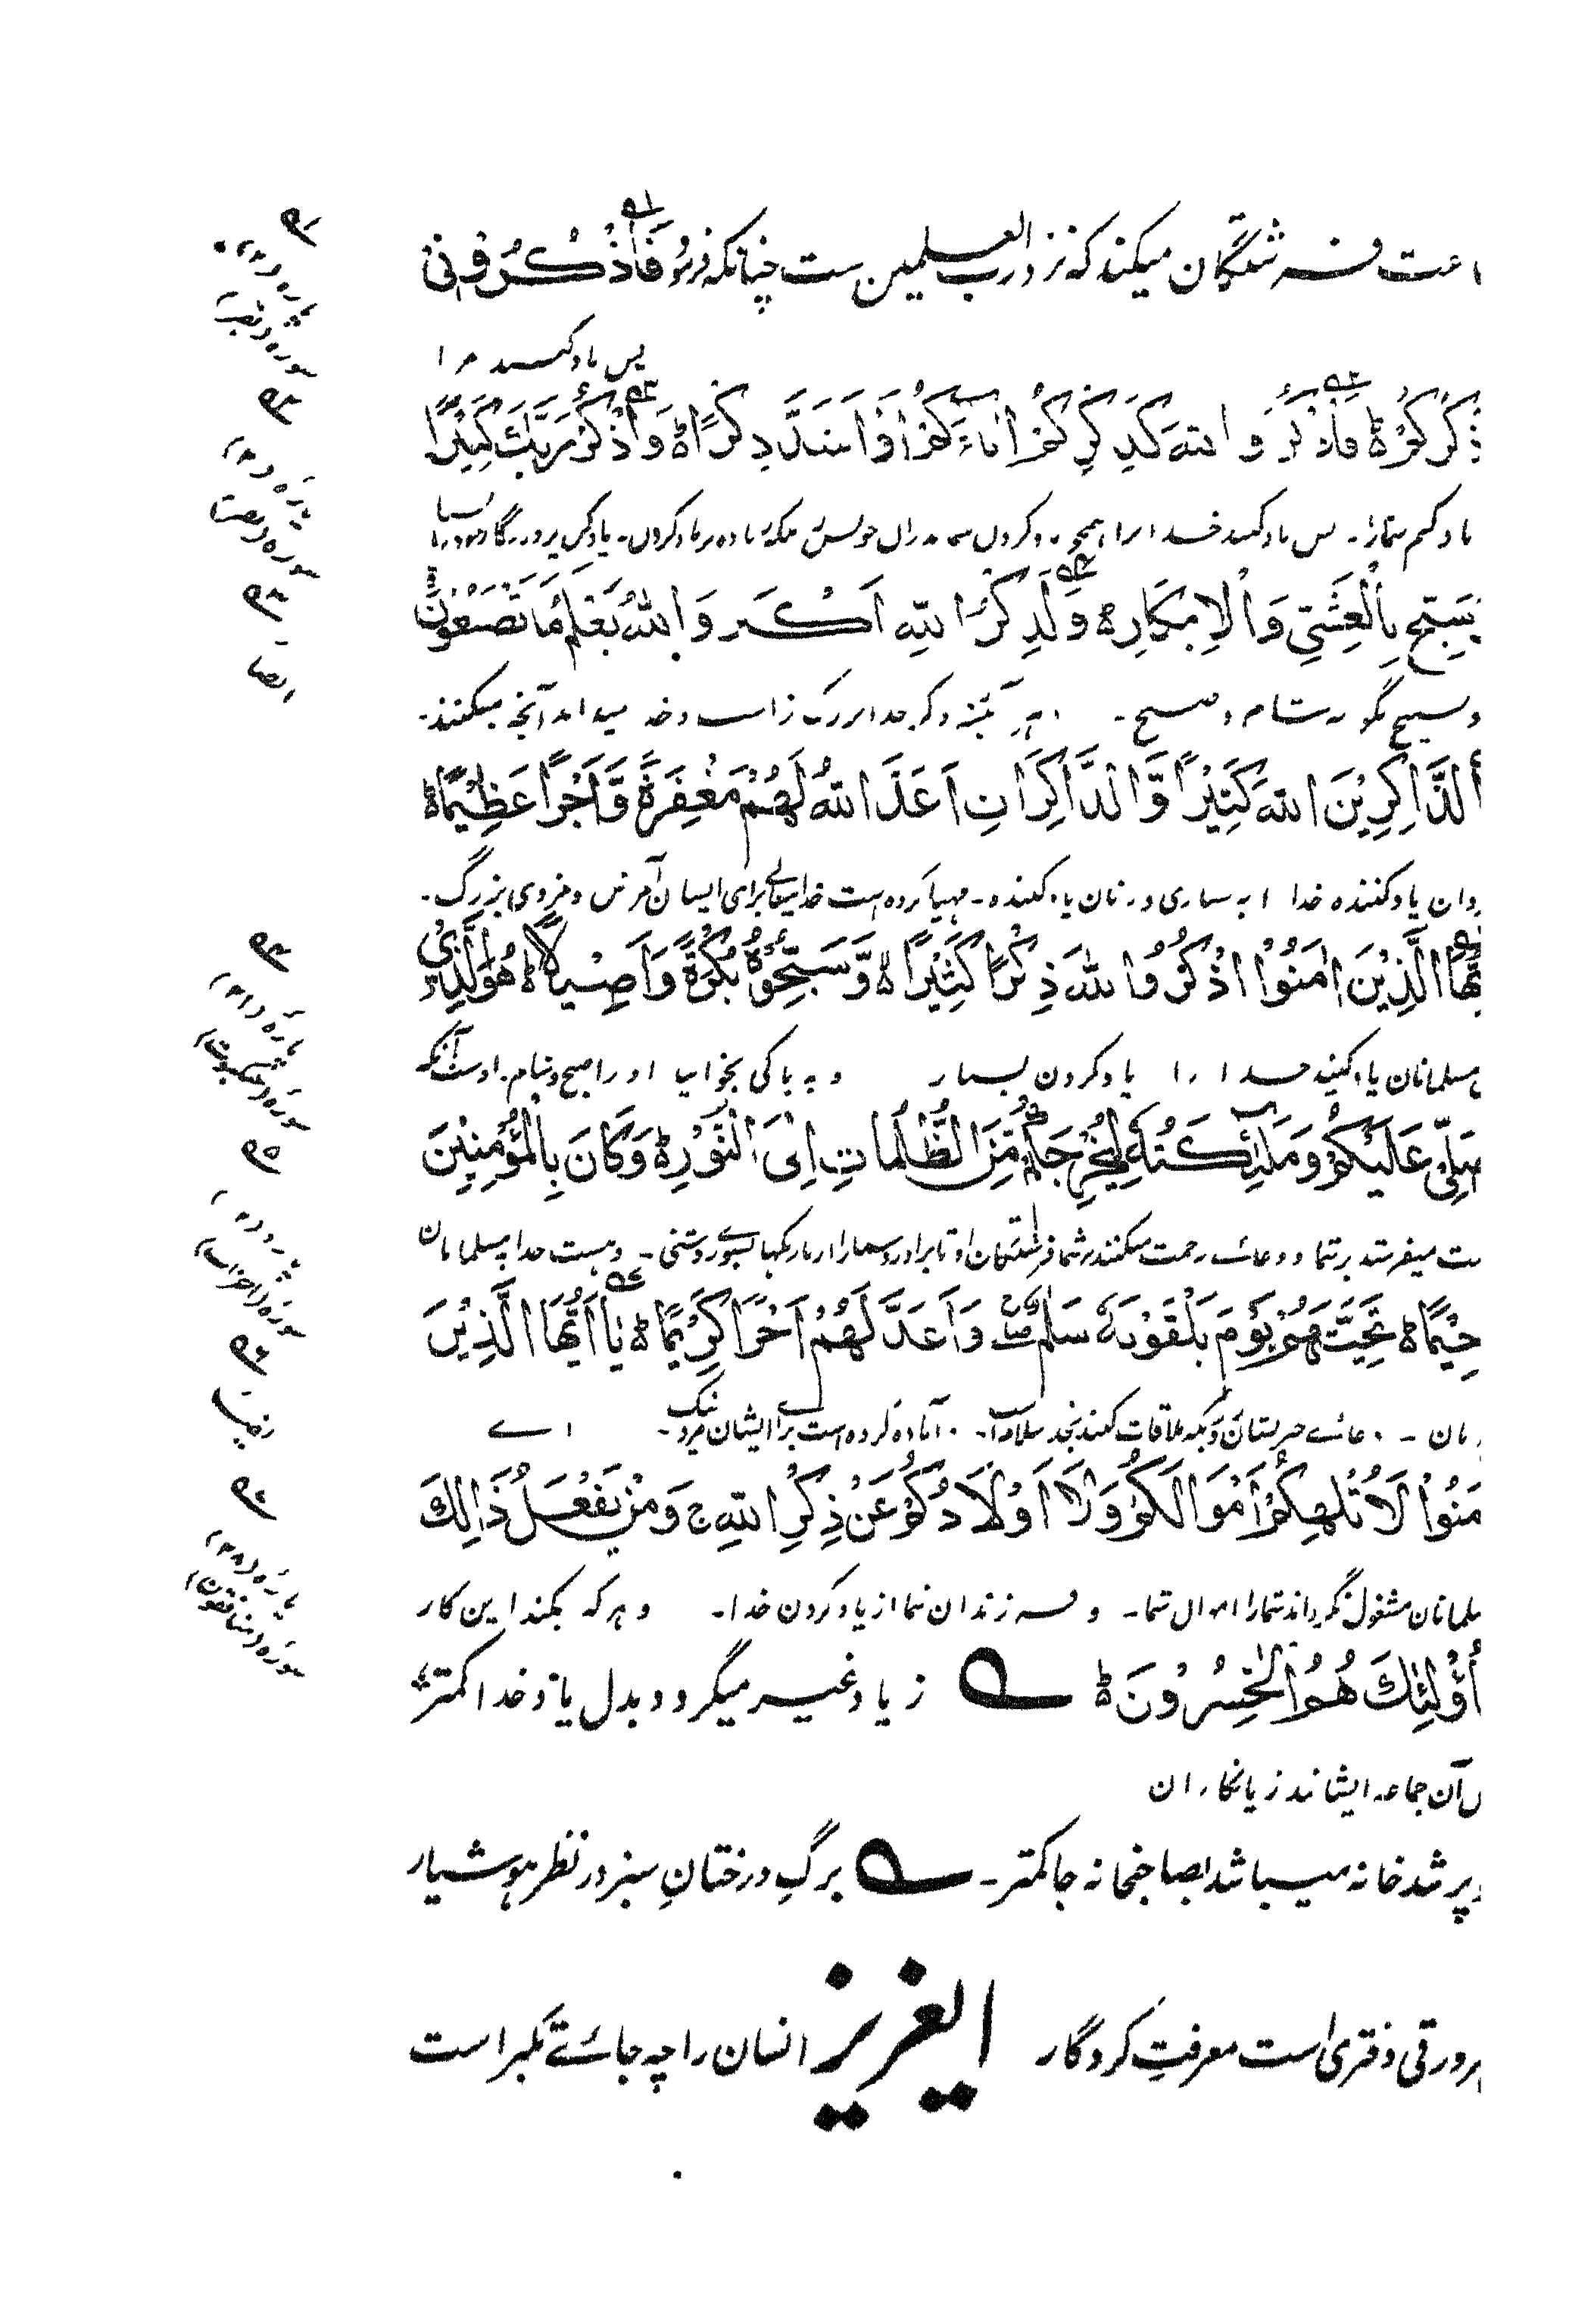 عت فرشتگان میکند که نزد رب العلمین ست چنانکه فرمود فَاذْكُرُوْنِیْ
پس یاد کنید مرا
اَذْكُرْكُمْ ط فَاذْكُرُوا اللهَ كَذِكْرِكُمْ اٰبَاءَكُمْ اَوْ اَشَدَّ ذِكْرًا ط وَاذْكُرْ رَبَّكَ كَثِیْرًا
یاد کنم شمارا۔ پس یاد کنید خدا را همچو یاد کردن پدران خویش بلکه زیاده بر یاد کردن۔ یاد کن پروردگار خود را بسیار
وَسَبِّحْ بِالْعَشِیِّ وَالْاِبْكَارِ ط وَلَذِكْرُ اللهِ اَكْبَر وَاللهُ یَعْلَمُ مَا تَصْنَعُوْنَ
و تسبیح گو به شام و صبح۔ هر آئینه ذکر خدا بزرگ تر است و خدا میداند آنچه میکنند۔
اَلذَّاكِرِیْنَ اللهَ كَثِیْرًا وَّالذَّاكِرَاتِ اَعَدَّ اللهُ لَهُمْ مَغْفِرَةً وَّاَجْرًا عَظِیْمًا ط
دان یاد کننده خدا را به بسیاری و زنان یاد کننده۔ مهیا کرده است خدایتعالے برای ایشان آمرزش و مزدوی بزرگ۔
یٰاَیُّهَا الَّذِیْنَ اٰمَنُوْا اذْكُرُوا اللهَ ذِكْرًا كَثِیْرًا ط وَّسَبِّحُوْهُ بُكْرَةً وَاَصِیْلًا ط هُوَالَّذِیْ
مسلمانان یاد کنید خدا را یاد کردن بسیار و به پاکی بخوانید او را صبح و شام۔ اوست آنکه
یُصَلِّیْ عَلَیْكُمْ وَمَلٰئِكَتُهٗ لِیُخْرِجَكُمْ مِّنَ الظُّلُمَاتِ اِلَی النُّوْرِ ط وَكَانَ بِالْمُؤْمِنِیْنَ
رحمت میفرستد بر شما و دعائے رحمت میکنند بر شما فرشتگان او تا برآورد شمارا از تاریکیها بسوے روشنی۔ و هست خدا بمسلمانان
رَحِیْمًا ط تَحِیَّتُهُمْ یَوْمَ یَلْقَوْنَهٗ سَلٰمٌ وَاَعَدَّ لَهُمْ اَجْرًا كَرِیْمًا ط یٰا اَیُّهَا الَّذِیْنَ
مهربان۔ دعائے خیر ایشان روزیکه ملاقات کنند بخدا سلام است۔ آماده کرده است برائے ایشان مزد نیک۔ اے
اٰمَنُوْا لَا تُلْهِكُمْ اَمْوَالَكُمْ وَلَا اَوْلَادُكُمْ عَنْ ذِكْرِ اللهِ ج وَمَنْ یَفْعَلْ ذَالِكَ
مسلمانان مشغول نگرداند شمارا اموال شما۔ و فرزندان شما از یاد کردن خدا۔ و هر که بکند این کار
اُوْلٰئِكَ هُمُ الْخٰسِرُوْنَ ط زیاد غیر میگردد بدل یاد خدا کمتر
آن جماعه ایشانند زیانکاران
پر شد خانه میباشد بصاحبخانه جا کمتر۔ برگِ درختانِ سبز در نظر هوشیار
هر ورقی دفتری است معرفتِ کردگار ایعزیز انسان را چه جائے تکبر است
پاره (۲)
سوره (بقر)
ایضاً
پاره (۲۱)
سوره (عنکبوت)
سوره (احزاب)
ایضاً
پاره (۲۸)
سوره (منافقون)